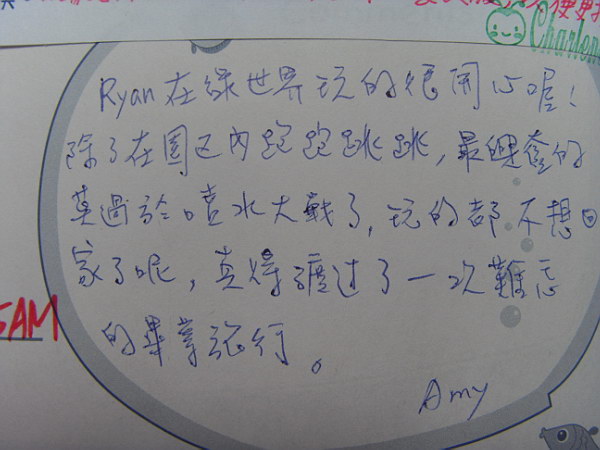 Charlene
Ryan在綠世界玩的很開心喔！
除了在園區內跑跑跳跳，最興奮的
莫過於噴水大戰了，玩的都不想回
家了呢，真得渡过了一次難忘
的畢業旅行。
SAM
Amy